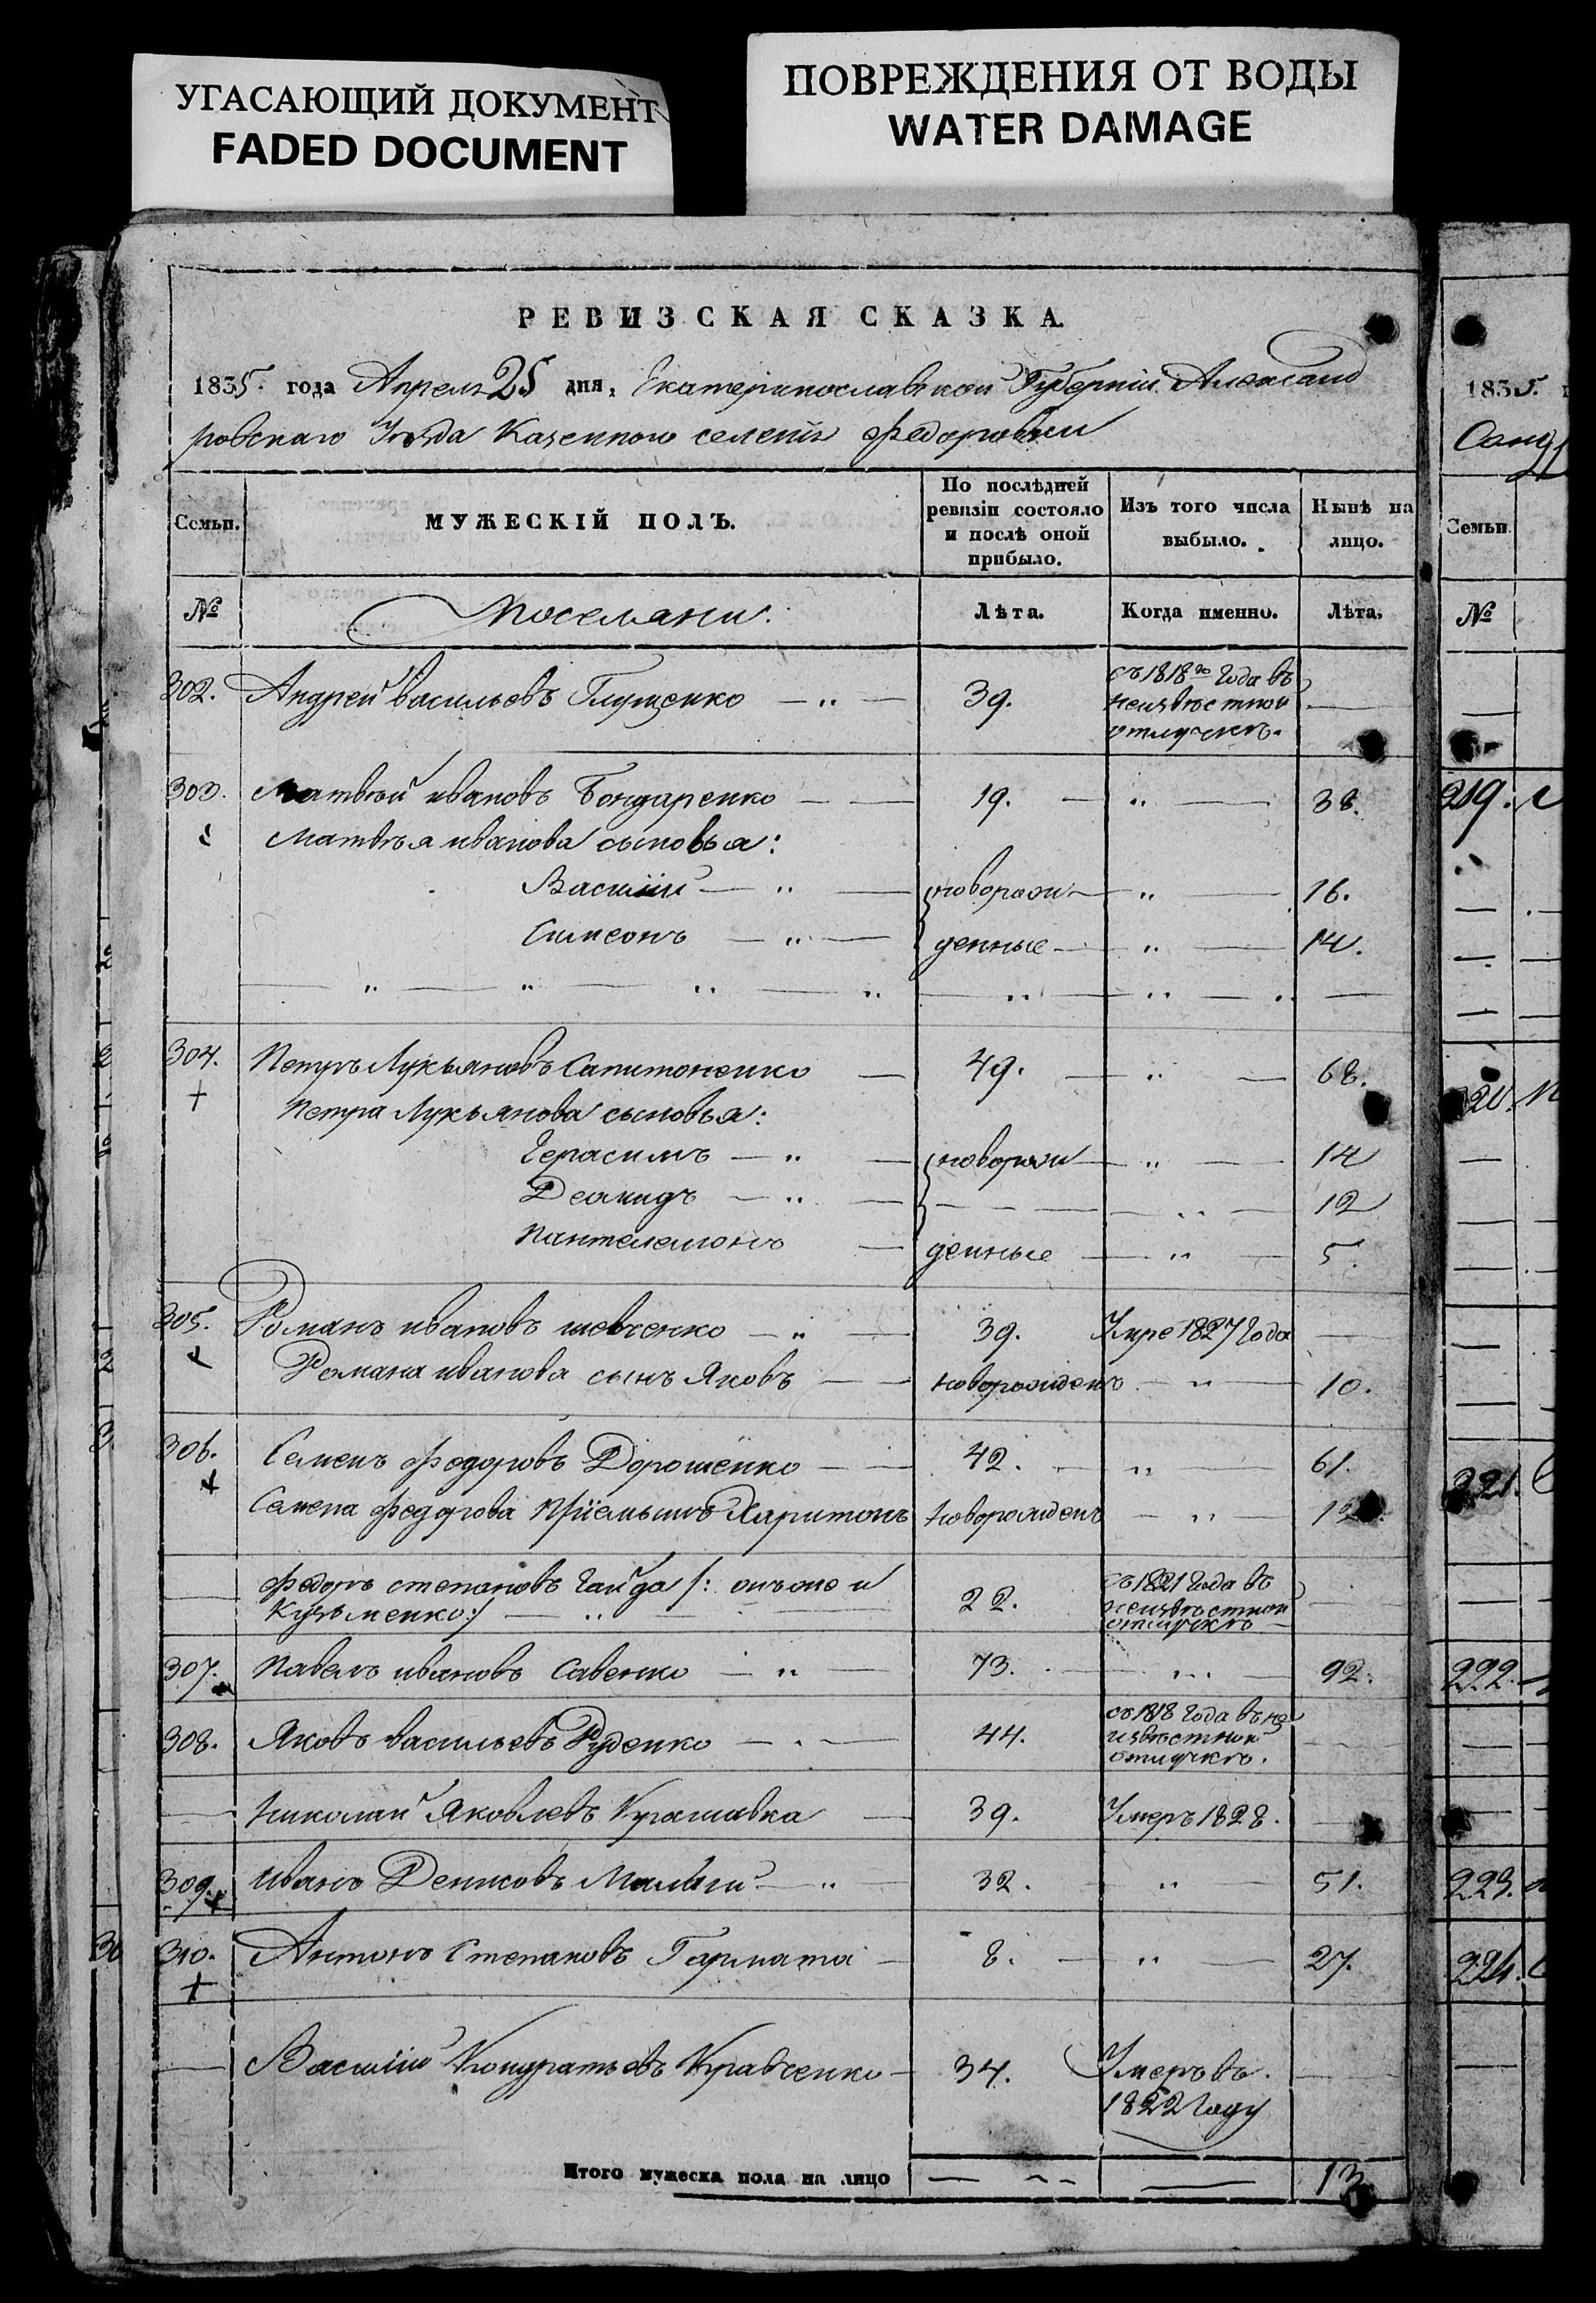 УГАСАЮЩИЙ ДОКУМЕНТ
FADED DOCUMENT
ПОВРЕЖДЕНИЯ ОТ ВОДЫ
WATER DAMAGE
РЕВИЗСКАЯ СКАЗКА
1835. года Апреля 25 дня, Екатеринославской Губернии Александ
ровскаго Уезда Казенного селения Федоровки
Семьи. МУЖЕСКІЙ ПОЛЪ. По послѣдней ревизіи состояло и послѣ оной прибыло. Изъ того числа выбыло. Нынѣ на лицо.
№ Поселяни. Лѣта. Когда именно. Лѣта.
302. Андрей васильевъ Глущенко — „ — 39. съ 1818го Года въ неизвѣстной отлучкѣ. —
303. Матвѣй ивановъ Бондаренко — — 19. — „ — 38.
Матвѣя иванова сыновья:
Василій — „ — новорож — „ — 16.
Симеонъ — „ — денные — „ — 14.
— „ — „ — „ — „ — „ — „ — „ —
304. Петръ Лукьяновъ Сапитоненко — 49. — „ — 68.
+ Петра Лукьянова сыновья:
Герасимъ — „ — новорож — „ — 14
Деомидъ — „ — — — — „ — 12
Пантелемонъ — денные — „ — 5.
305. Романъ ивановъ шевченко — „ — 39. Умре 1827 Года —
Романа иванова сынъ Яковъ — — новорожденъ — „ — 10.
306. Семенъ Федоровъ Дорошенко — — 42. „ — 61.
Семена Федорова Пріемышъ Харитонъ новорожденъ — „ —
— Федоръ степановъ Гайда /: онъ же и
Кузьменко :/ — „ — 22. съ 1821 Года въ неизвѣстной отлучкѣ —
307. Павелъ ивановъ Савенко — „ — 73. — „ — 92.
308. Яковъ васильевъ Руденко — „ — 44. съ 1818 Года въ не извѣстной отлучкѣ. —
— Николай Яковлевъ Крашавка — 39. Умеръ 1828. —
309. Иванъ Денисовъ Малый — „ — 32. — „ — 51.
310. Антонъ Степановъ Гармата — 8. — „ — 27.
+
— Василій Кондратьевъ Кравченко — 34. Умеръ въ 1822 Году —
Итого мужеска пола на лицо — — — 13
1835.
Семьи
№
219.
222.
223.
224.